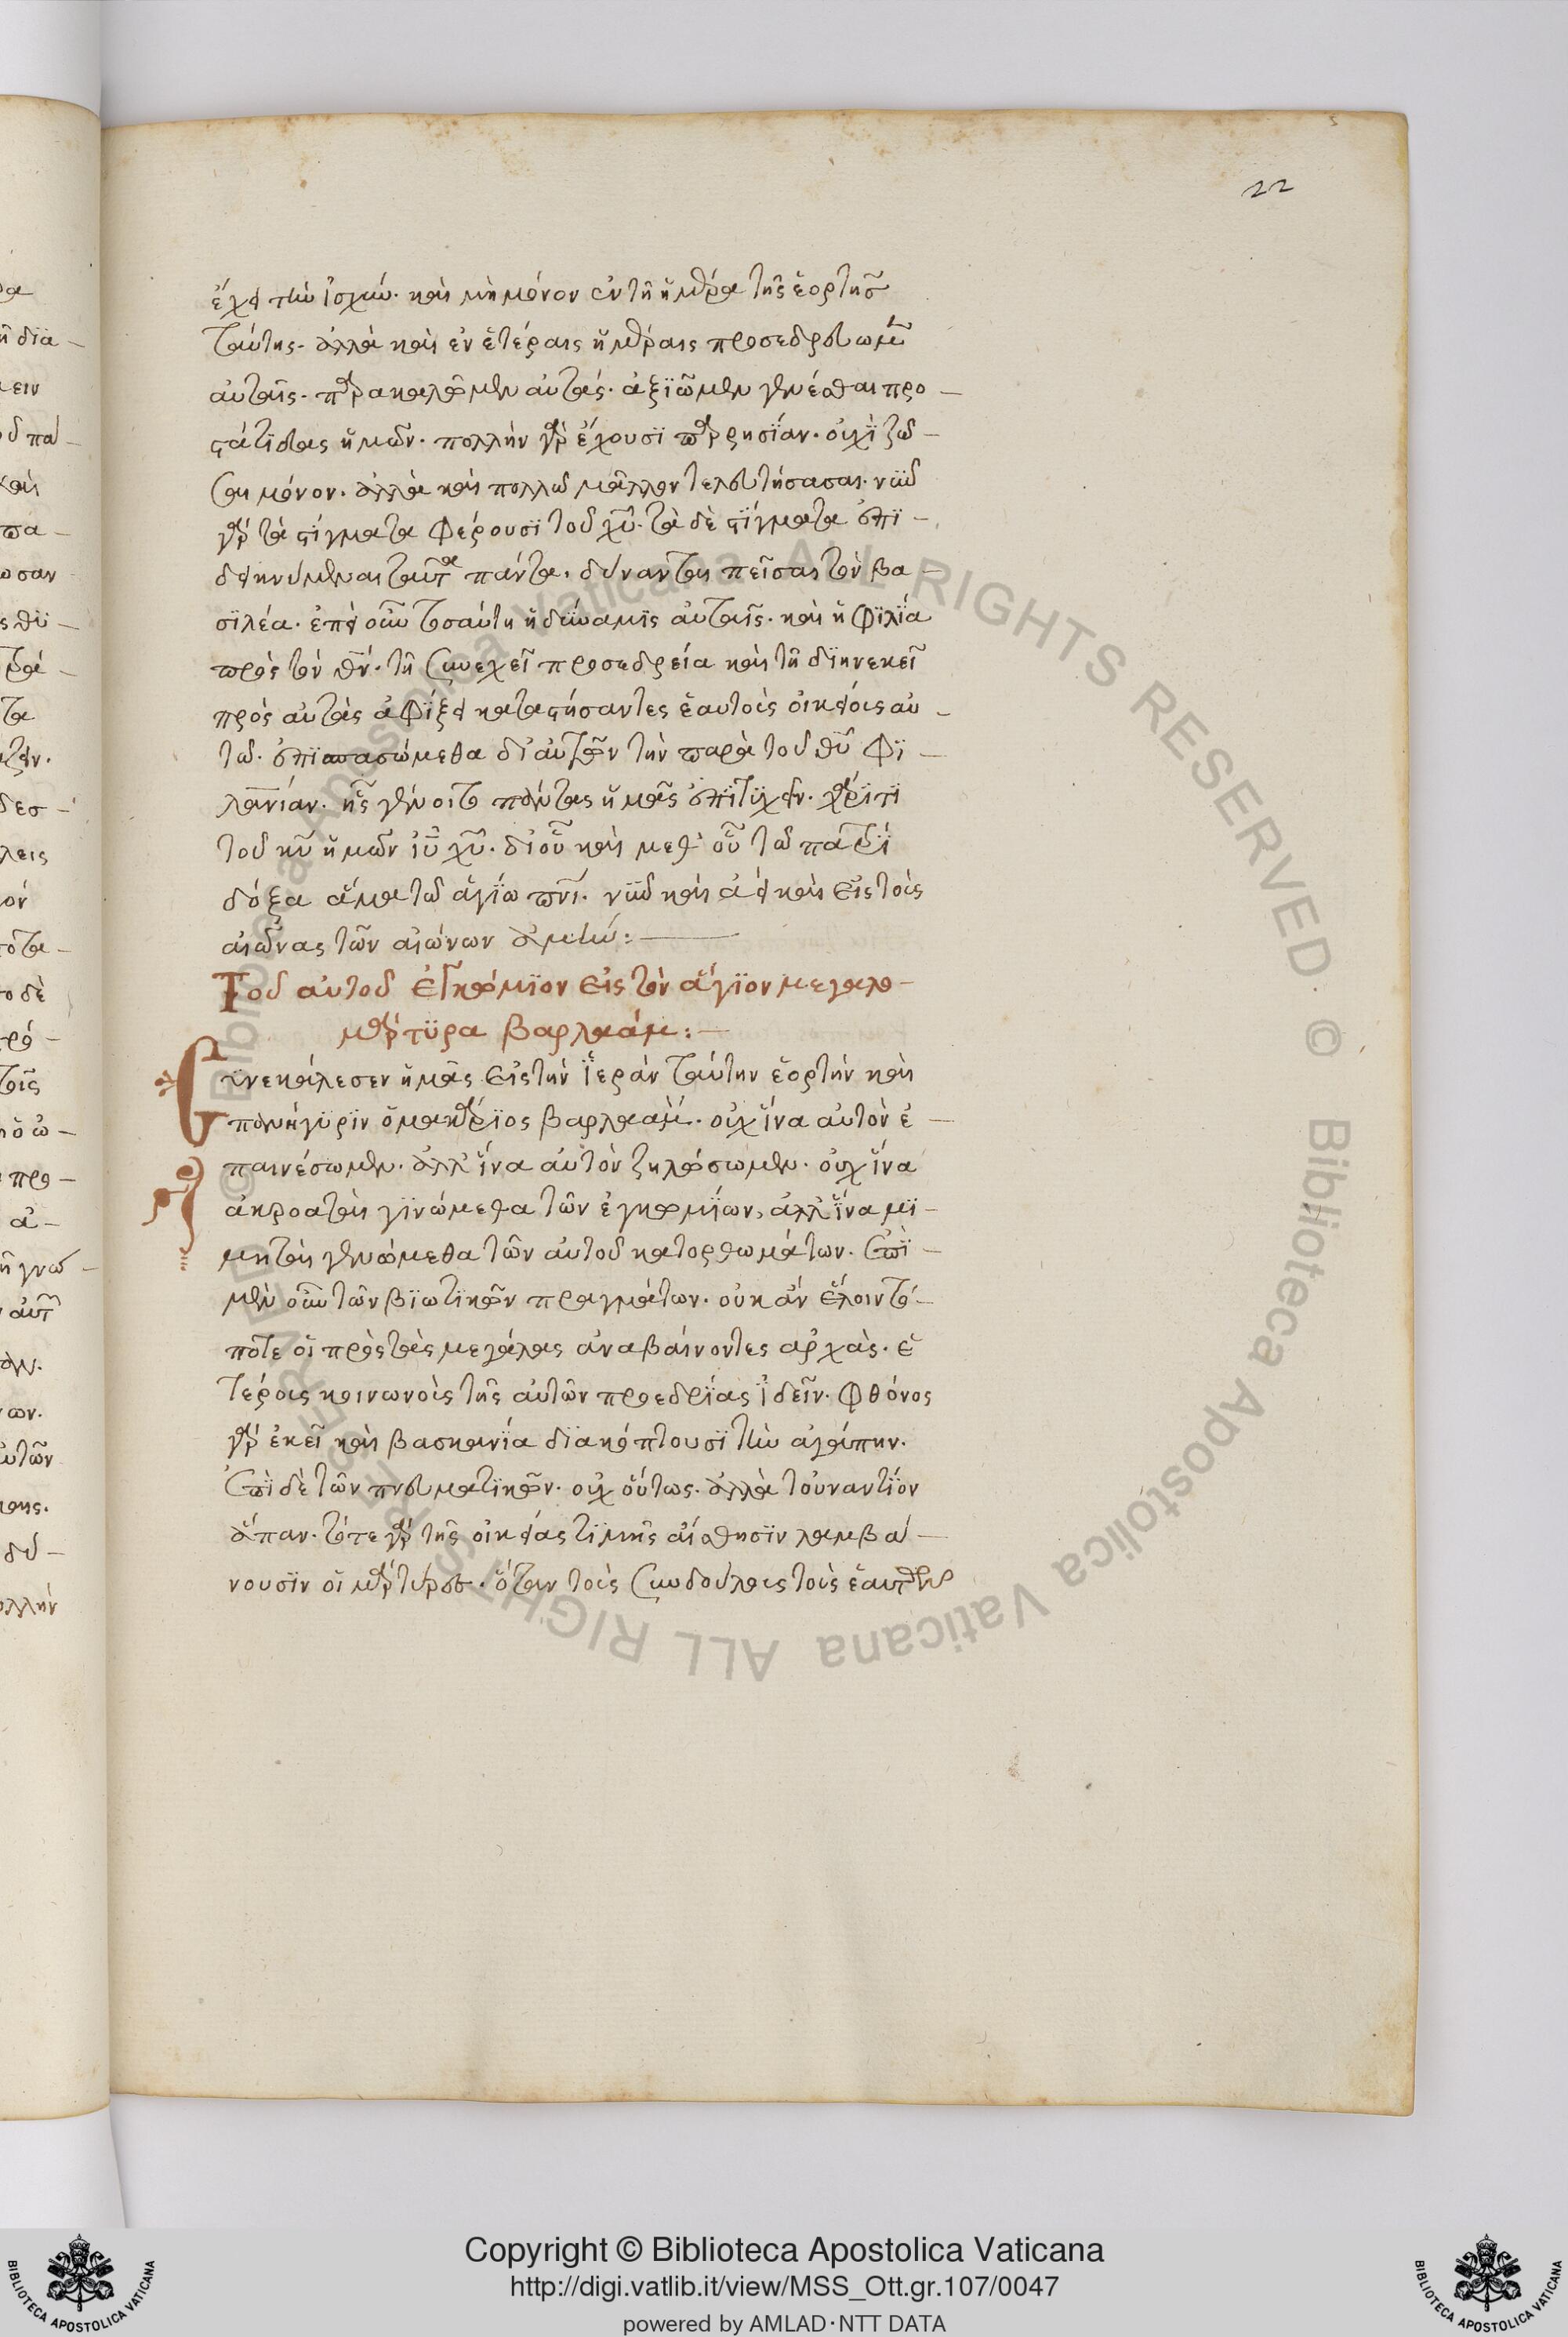 22
ἔχει τὴν ἰσχύν. καὶ μὴ μόνον ἐν τῆ ἡμέρα τῆς ἑορτῆς
ταύτης. ἀλλὰ καὶ ἐν ἑτέραις ἡμέραις προσεδρεύωμεν
αὐταῖς. παρακαλῶμεν αὐτάς. ἀξϊῶμεν γενέσθαι προ–
στάτϊδας ἡμῶν. πολλὴν γὰρ ἔχουσϊ παρρησΐαν. οὐχϊ ζῶ–
σαι μόνον. ἀλλὰ καὶ πολλῶ μᾶλλον τελευτήσασαι. νῦν
γὰρ τὰ στίγματα φέρουσϊ τοῦ χυ. τὰ δὲ στΐγματα ἐπϊ–
δεικνύμεναι ταῦτα πάντα. δύνανται πεῖσαι τὸν βα–
σϊλέα. ἐπεὶ οὖν τοσαύτη ἡ δύναμϊς αὐταῖς. καὶ ἡ φϊλΐα
πρὸς τὸν θν. τῆ συνεχεῖ προσεδρεία καὶ τῆ δϊηνεκεῖ
πρὸς αὐτὰς ἀφΐξει καταστήσαντες ἑαυτοὺς οἰκείους αὐ–
τῶ. ἐπϊσπασώμεθα δι' αὐτῶν τὴν παρὰ τοῦ θυ φϊ–
λανΐαν. ἧς γένοιτο πάντας ἡμᾶς ἐπϊτϋχεῖν. χάρϊτϊ
τοῦ κυ ἡμῶν ιυ χυ. δι' οὗ καὶ μεθ' οὗ τῶ πατρϊ
δόξα ἅμα τῶ ἁγΐω πνι. νῦν καὶ ἀεὶ καὶ εἰς τοὺς
αἰῶνας τῶν αἰώνων ἀμήν:—
Τοῦ αὐτοῦ ἐγκώμϊον εἰς τὸν ἅγϊον μεγαλο–
μάρτϋρα βαρλαάμ:—
Σϋνεκάλεσεν ἡμᾶς εἰς τὴν ϊερὰν ταύτην ἑορτὴν καὶ
πανήγϋρϊν ὁ μακάρϊος βαρλαὰμ. οὐχ ἵνα αὐτὸν ἐ–
παινέσωμεν. ἀλλ' ἵνα αὐτὸν ζηλώσωμεν. οὐχ ἵνα
ἀκροαταὶ γϊνώμεθα τῶν ἐγκωμΐων, ἀλλ' ἵνα μϊ–
μηταὶ γενώμεθα τῶν αὐτοῦ κατορθωμάτων. Ἐπϊ
μὲν οὖν τῶν βϊωτϊκῶν πραγμάτων. οὐκ ἂν ἕλοιντό–
ποτε οἱ πρὸς τὰς μεγάλας ἀναβαίνοντες ἀρχὰς. ἑ
τέρους κοινωνοὺς τῆς αὐτῶν προεδρΐας ϊδεῖν. φθόνος
γὰρ ἐκεῖ καὶ βασκανΐα δϊακόπτουσϊ τὴν ἀγάπην.
Ἐπϊ δὲ τῶν πνευματϊκῶν. οὐχ οὕτως. ἀλλὰ τοὐναντΐον
ἅπαν. τότε γὰρ τῆς οἰκείας τϊμῆς αἴσθησϊν λαμβά–
νουσϊν οἱ μάρτυρες. ὅταν τοὺς συνδούλους τοὺς ἑαυτῶν
Copyright © Biblioteca Apostolica Vaticana
http://digi.vatlib.it/view/MSS_Ott.gr.107/0047
powered by AMLAD·NTT DATA